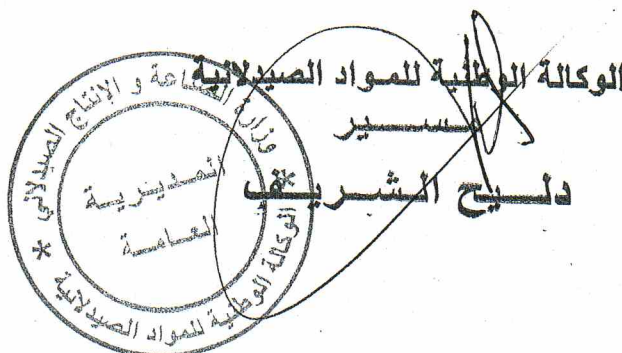 الوكالة الوطنية للمواد الصيدلانية
مســـير
دلـــيح الشـريـــف
وزارة الصناعة و الإنتاج الصيدلاني
* الوكالة الوطنية للمواد الصيدلانية *
المديرية
العامة